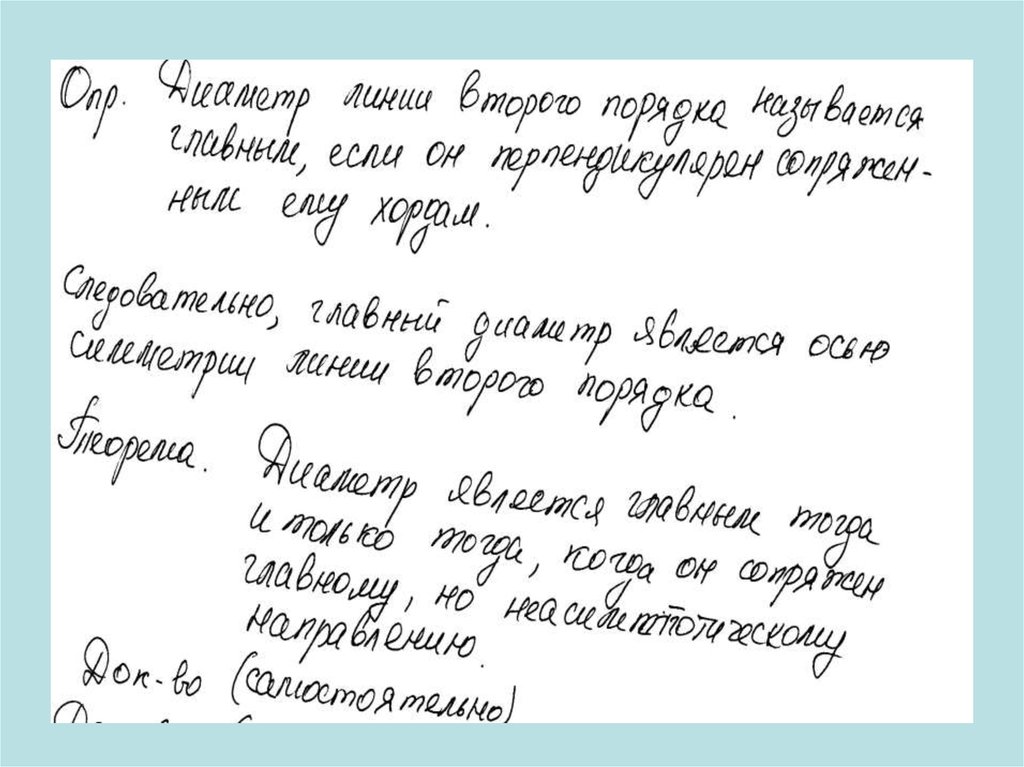 Опр. Диаметр линии второго порядка называется
главным, если он перпендикулярен сопряжен-
ным ему хордам.
Следовательно, главный диаметр является осью
симметрии линии второго порядка.
Теорема. Диаметр является главным тогда
и только тогда, когда он сопряжен
главному, но неасимптотическому
направлению.
Док-во (самостоятельно)